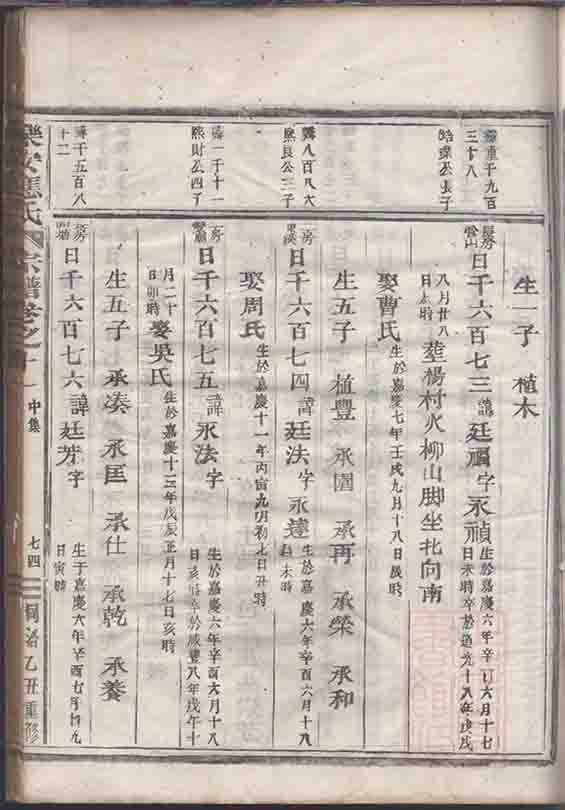 生一子 植木
重千九百三十八
公長子
日千六百七三諱廷福字永禎
生於嘉慶六年辛酉六月十七日未時卒於道光十八年戊戌八月廿八日 時
塟楊村火柳山脚坐北向南
娶曹氏
生於嘉慶七年壬戌九月十八日辰時
生五子 植豐 承圍 承再 承榮 承和
八百八六
良公三子
日千六百七四諱廷法字永達
生於嘉慶六年辛酉六月十八 未時
娶周氏
生於嘉慶十一年丙寅九月初七日丑時
一千十一
熙財公四子
日千六百七五諱永法字
生於嘉慶六年辛酉六月十八日亥時卒於咸豐八年戊午十月二十日卯時
娶吳氏
生於嘉慶十三年戊辰正月十七日亥時
生五子 承湊 承匡 承仕 承乾 承養
千五百八十二
日千六百七六諱廷芳字
生于嘉慶六年辛酉七月 九日寅時
樂安應氏宗譜卷之十一
中集
七四
桐洛乙丑重修